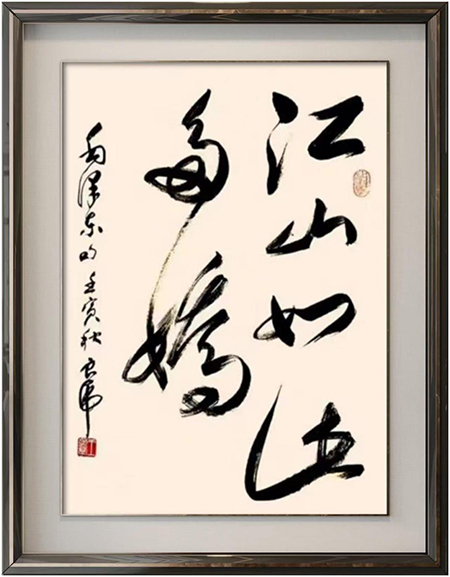 江山如此
多嬌
毛泽东句 壬寅秋